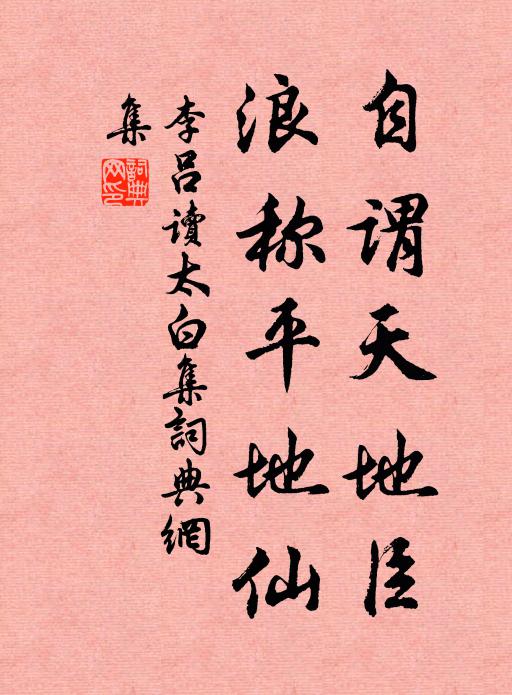 自谓天地臣
浪称平地仙
李吕读太白集詞典網
集
詞典
网印